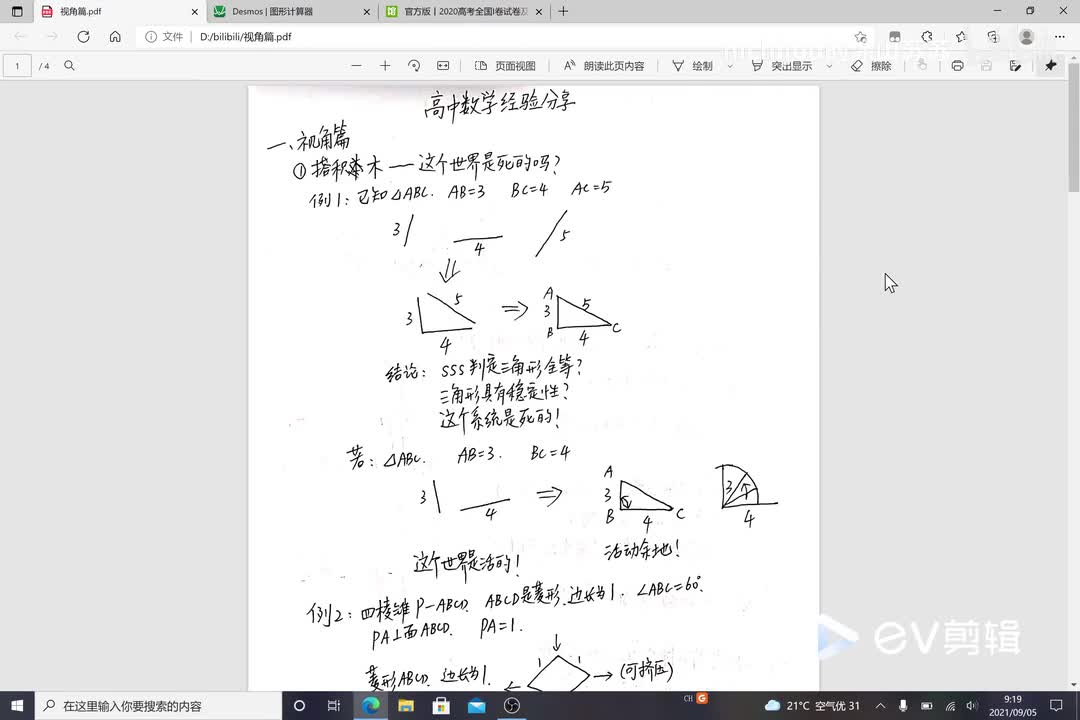 视角篇.pdf
Desmos | 图形计算器
官方版丨2020高考全国I卷试卷及
文件 D:/bilibili/视角篇.pdf
1 / 4
页面视图
朗读此页内容
绘制
突出显示
擦除
高中数学经验分享
一、视角篇
① 搭积木 — 这个世界是死的吗?
例1: 已知△ABC. AB=3 BC=4 AC=5
3 4 5
3 5 4
A 3 5 B 4 C
结论: SSS判定三角形全等?
三角形具有稳定性?
这个系统是死的!
若: △ABC. AB=3. BC=4
3 4
A 3 B 4 C
3 4
活动余地!
这个世界是活的!
例2: 四棱锥 P-ABCD. ABCD是菱形.边长为1. ∠ABC=60°.
PA⊥面ABCD. PA=1.
菱形ABCD. 边长为1. 1 1 (可挤压)
EV剪辑
在这里输入你要搜索的内容
CH
21°C 空气优 31
9:19
2021/09/05